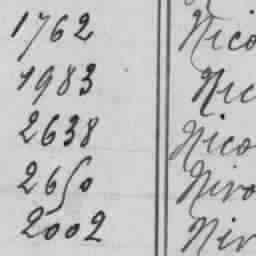 1762 Nico
1983 Nic
2638 Nico
2650 Niro
2002 Nir